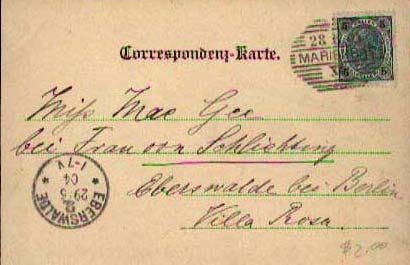 Correspondenz-Karte.
28
MARIE
5 5
Miss Mac Gee
bei Frau von Schlichting
Eberswalde bei Berlin
Villa Rosa.
EBERSWALDE
29.5
04
1-7V
$2.00